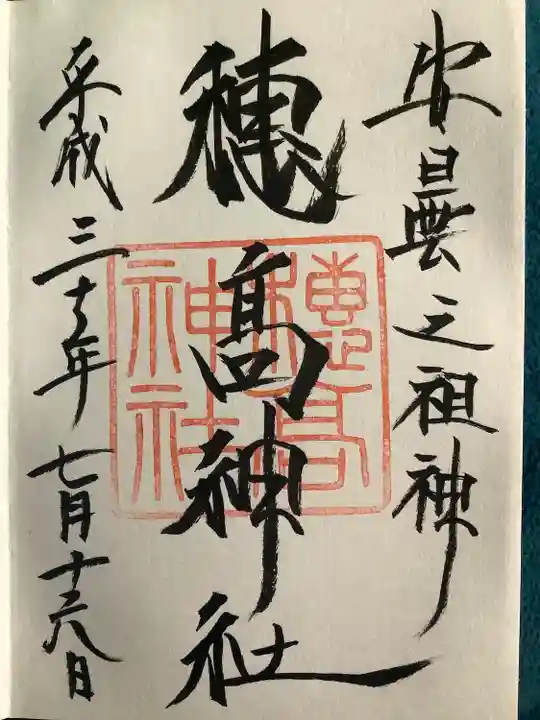 安曇之祖神
穂髙神社
穂高神社
平成三十年
七月十六日